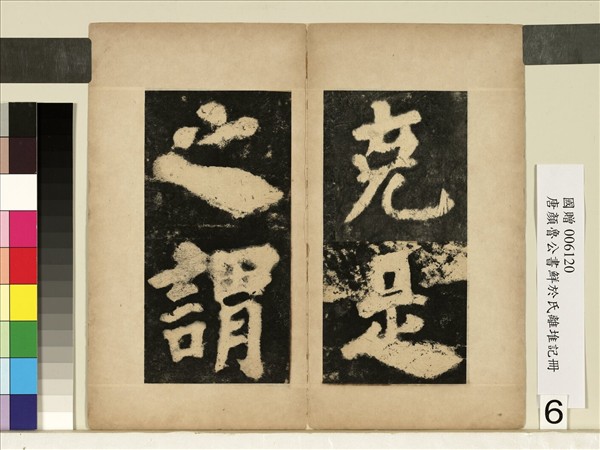 克是
之謂
國贈 006120
唐顏魯公書鮮於氏離堆記冊
6